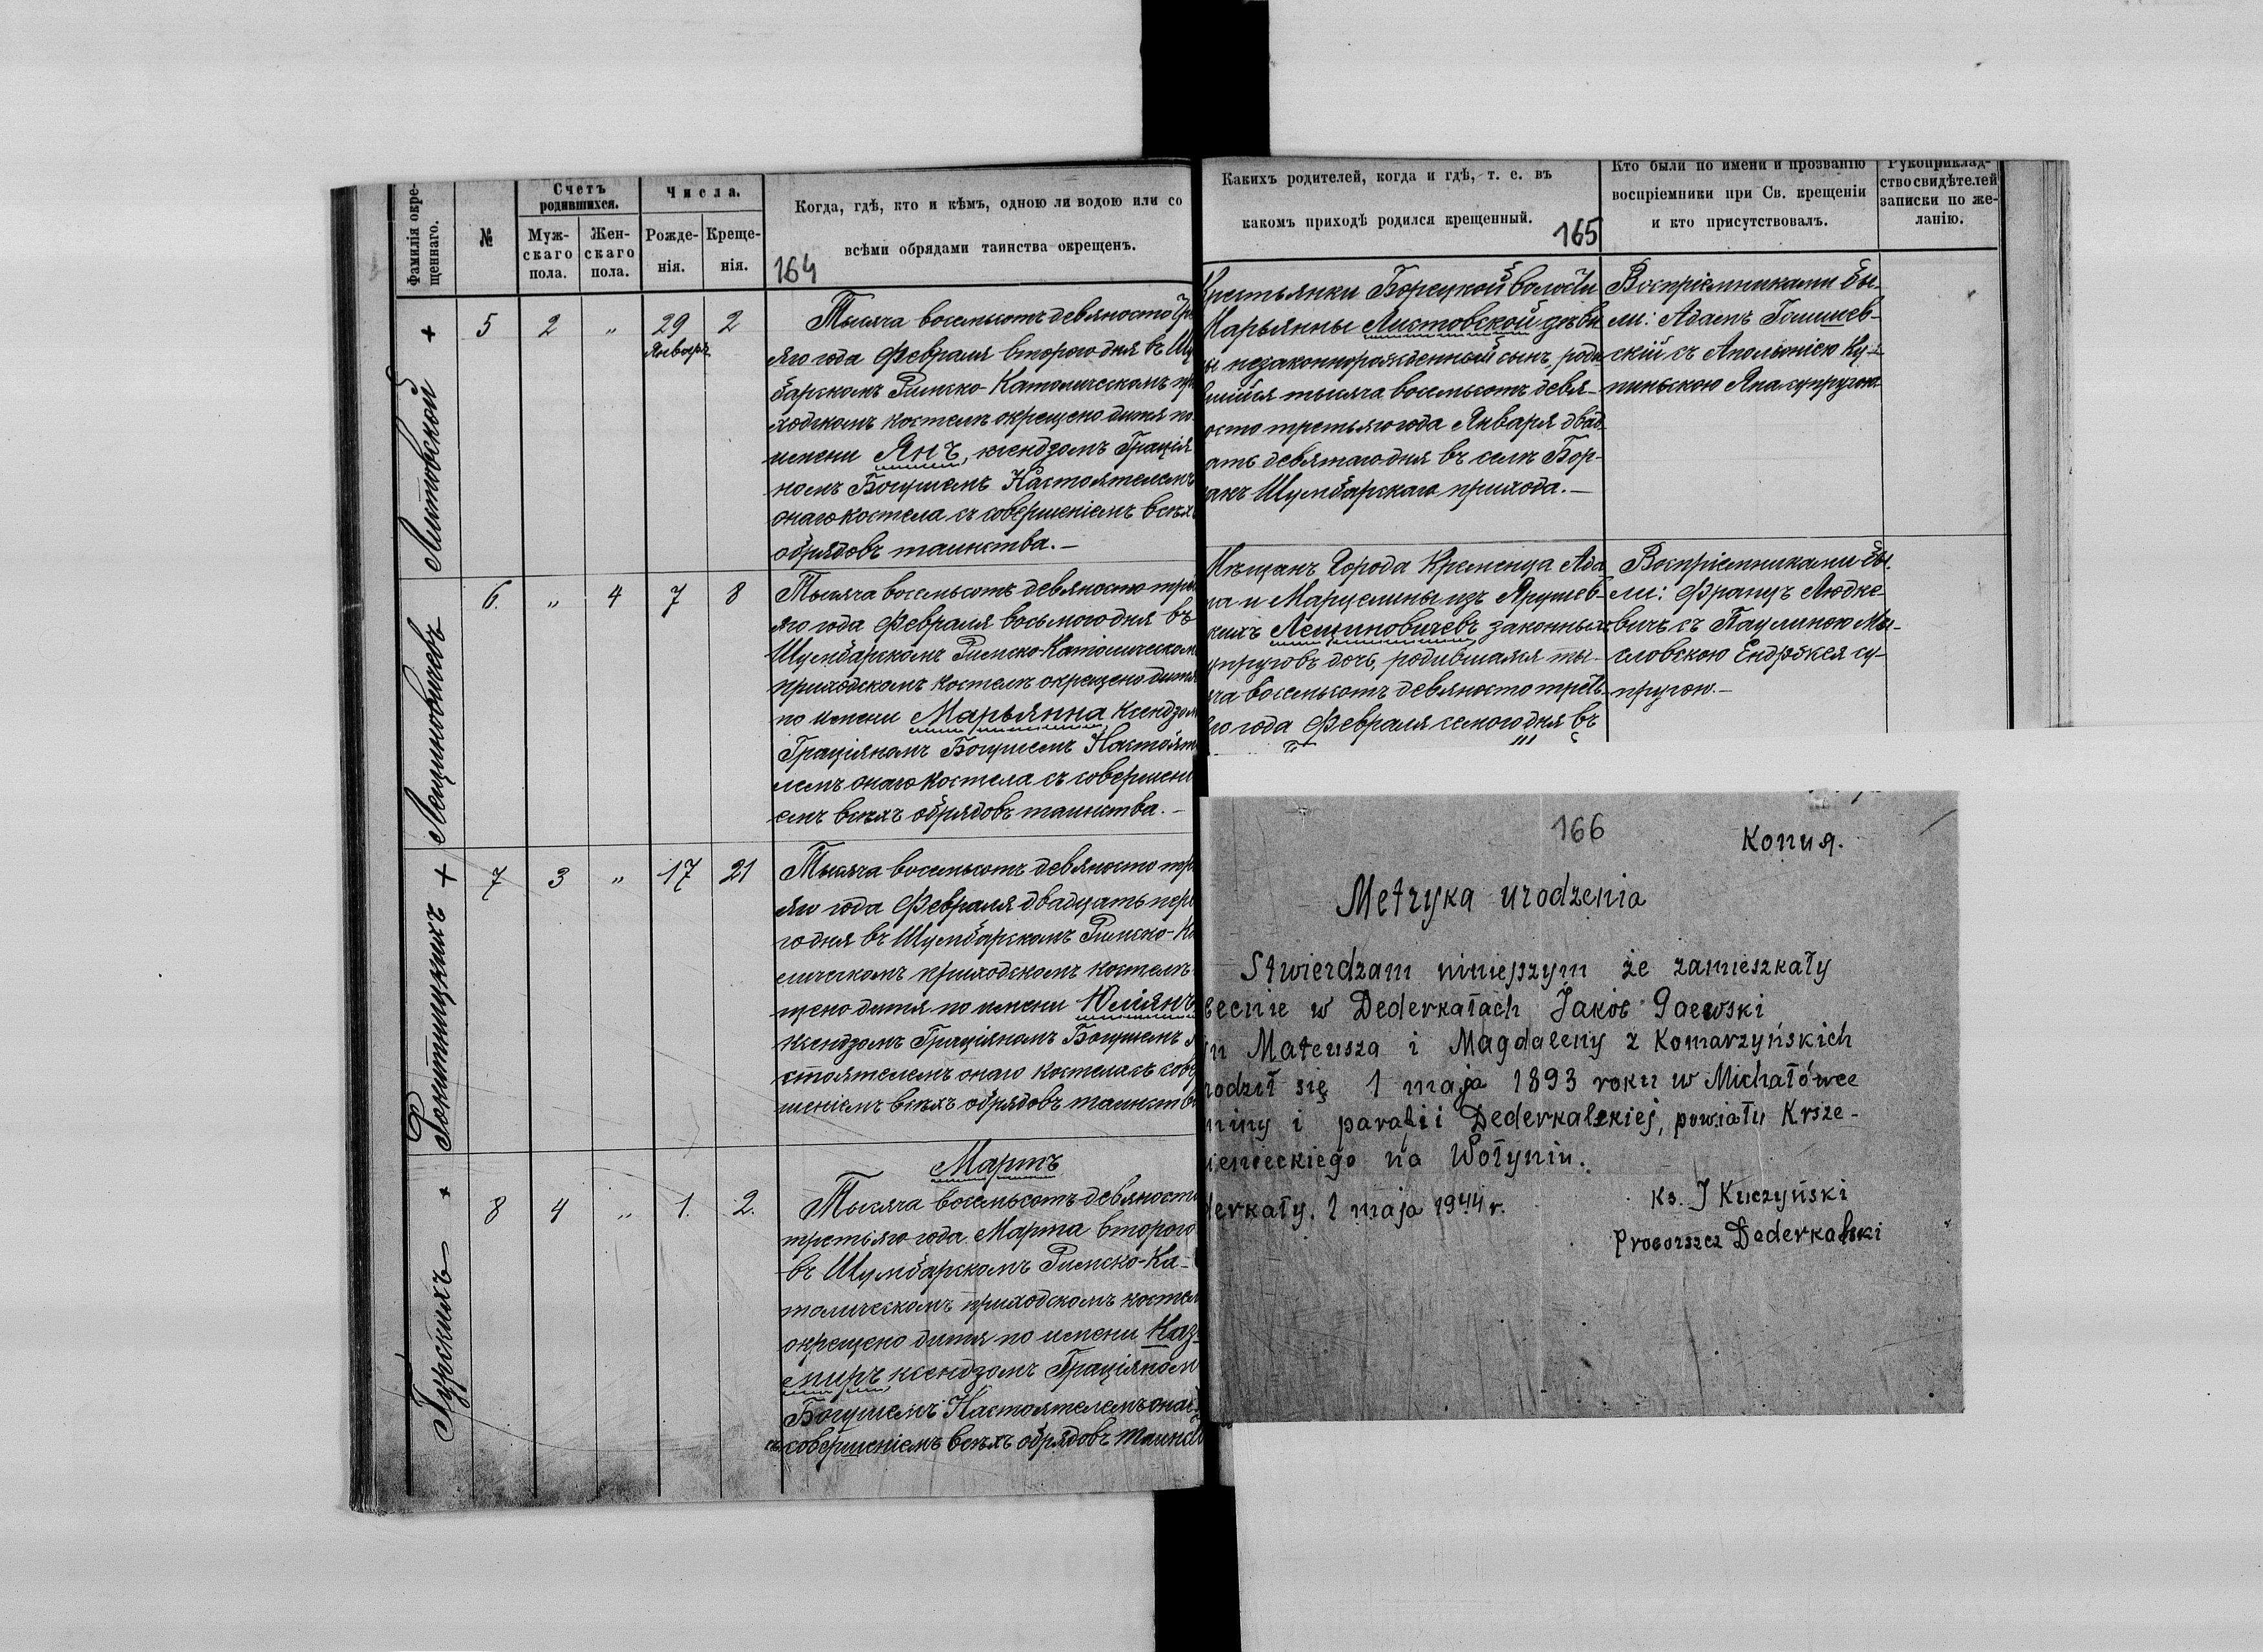 Фамилія окре-
щеннаго.
№
Счетъ
родившихся.
Муж-
скаго
пола.
Жен-
скаго
пола.
Числа.
Рожде-
нія.
Креще-
нія.
Когда, гдѣ, кто и кѣмъ, одною ли водою или со
всѣми обрядами таинства окрещенъ.
164
Литовской +
5 2 „ 29 2
Январь
Тысяча восемьсотъ девяносто
яго года Февраля второго дня въ Шу
барскомъ Римско-Католическомъ при
ходскомъ костелѣ окрещено дитя по
имени Янъ, ксендзомъ Грація
номъ Богушемъ Настоятелемъ
онаго костела съ совершеніемъ всѣхъ
обрядовъ таинства.—
Лещиновичевъ
6. „ 4 7 8
Тысяча восемьсотъ девяносто трет
яго года Февраля восьмого дня въ
Шумбарскомъ Римско-Католическом
приходскомъ костелѣ окрещено дитя
по имени Марьянна ксендзом
Граціяномъ Богушемъ Настоят
лемъ онаго костела съ совершені
емъ всѣхъ обрядовъ таинства.—
Рокитницкихъ +
7 3 „ 17 21
Тысяча восемьсотъ девяносто тр
яго года Февраля двадцать перв
го дня въ Шумбарскомъ Римско-Ка
лическомъ приходскомъ костелѣ
щено дитя по имени Юліянъ
ксендзомъ Граціяномъ Богушемъ
стоятелемъ онаго костела съ совер
шеніемъ всѣхъ обрядовъ таинств
Гурскихъ +
8 4 „ 1. 2.
Мартъ
Тысяча восемьсотъ девяносто
третьяго года Марта второго
въ Шумбарскомъ Римско-Ка-
толическомъ приходскомъ костел
окрещено дитя по имени Каз-
миръ ксендзомъ Граціяном
Богушемъ Настоятелемъ онаго
съ совершеніемъ всѣхъ обрядовъ таинст
Какихъ родителей, когда и гдѣ, т. е. въ
какомъ приходѣ родился крещенный.
165
Кто были по имени и прозванію
воспріемники при Св. крещеніи
и кто присутствовалъ.
Рукоприклад-
ство свидѣтелей
записки по же-
ланію.
Крестьянки Борецкой волости
Марьянны Листовской дѣви
ы незаконнорожденный сынъ, роди
вшійся тысяча восемьсотъ девя-
осто третьяго года Января двад
ать девятаго дня въ селѣ Бор-
акъ Шумбарскаго прихода.—
Воспріемниками бы-
ли: Адамъ
скій съ Аполоніею Ку-
пиньскою Яна супругою
Мѣщанъ Города Кременца Ада
ма и Марцелины изъ Ярушев-
кихъ Лещиновичевъ законныхъ
упруговъ дочь, родившаяся ты-
яча восемьсотъ девяносто треть-
го года Февраля семого дня въ
Воспріемниками бы-
ли: Францъ Людке-
вичъ съ Паулиною Мы-
словскою Ендржея су-
пругою.—
166
Копия.
Metryka urodzenia
Stwierdzam niniejszym że zamieszkały
becnie w Dederkałach Jakób Gaewski
yn Mateusza i Magdaleny z Komarzyńskich
rodził się 1 maja 1893 roku w Michałówce
miny i parafii Dederkalskiej, powiatu Krze-
ienieckiego na Wołyniu.
derkały. 2 maja 1944 r.
Ks. J Kuczyński
proboszcz Dederkalski